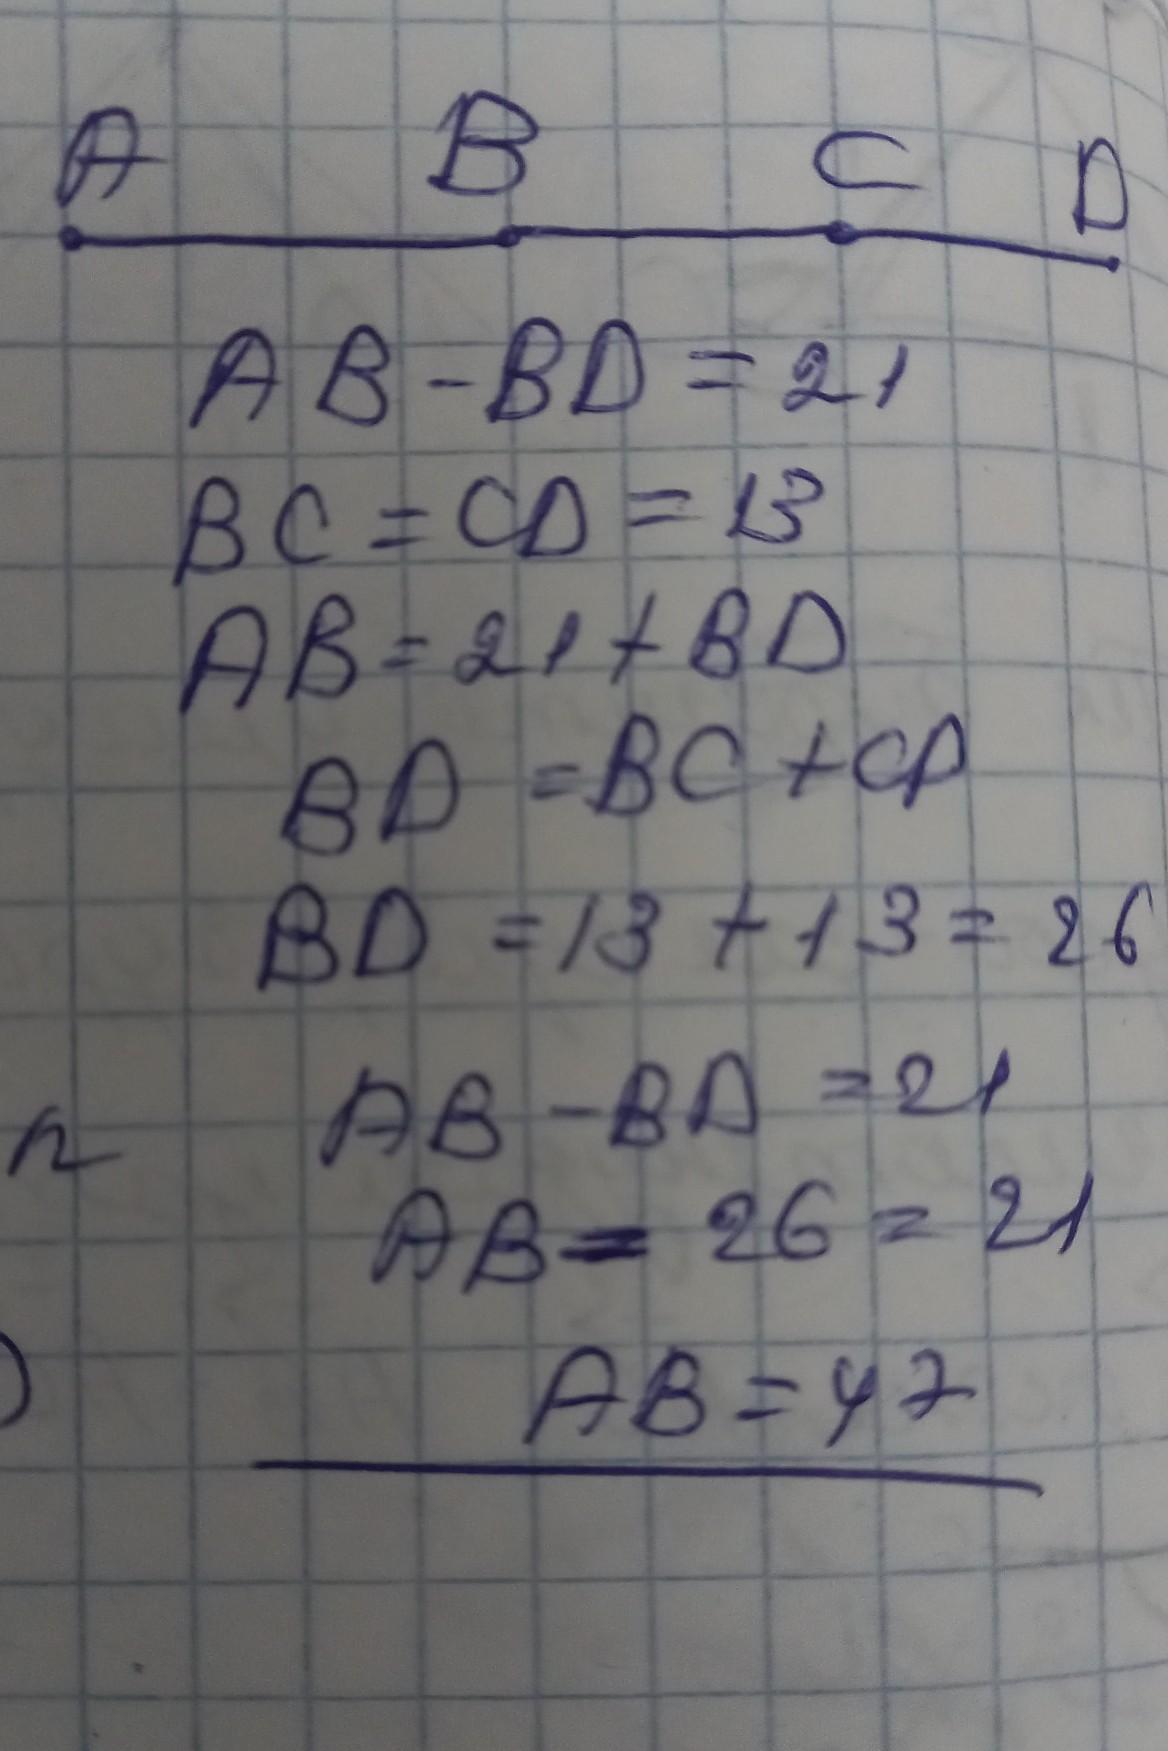 A B C D
AB - BD = 21
BC = CD = 13
AB = 21 + BD
BD = BC + CD
BD = 13 + 13 = 26
AB - BD = 21
AB = 26 = 21
AB = 47